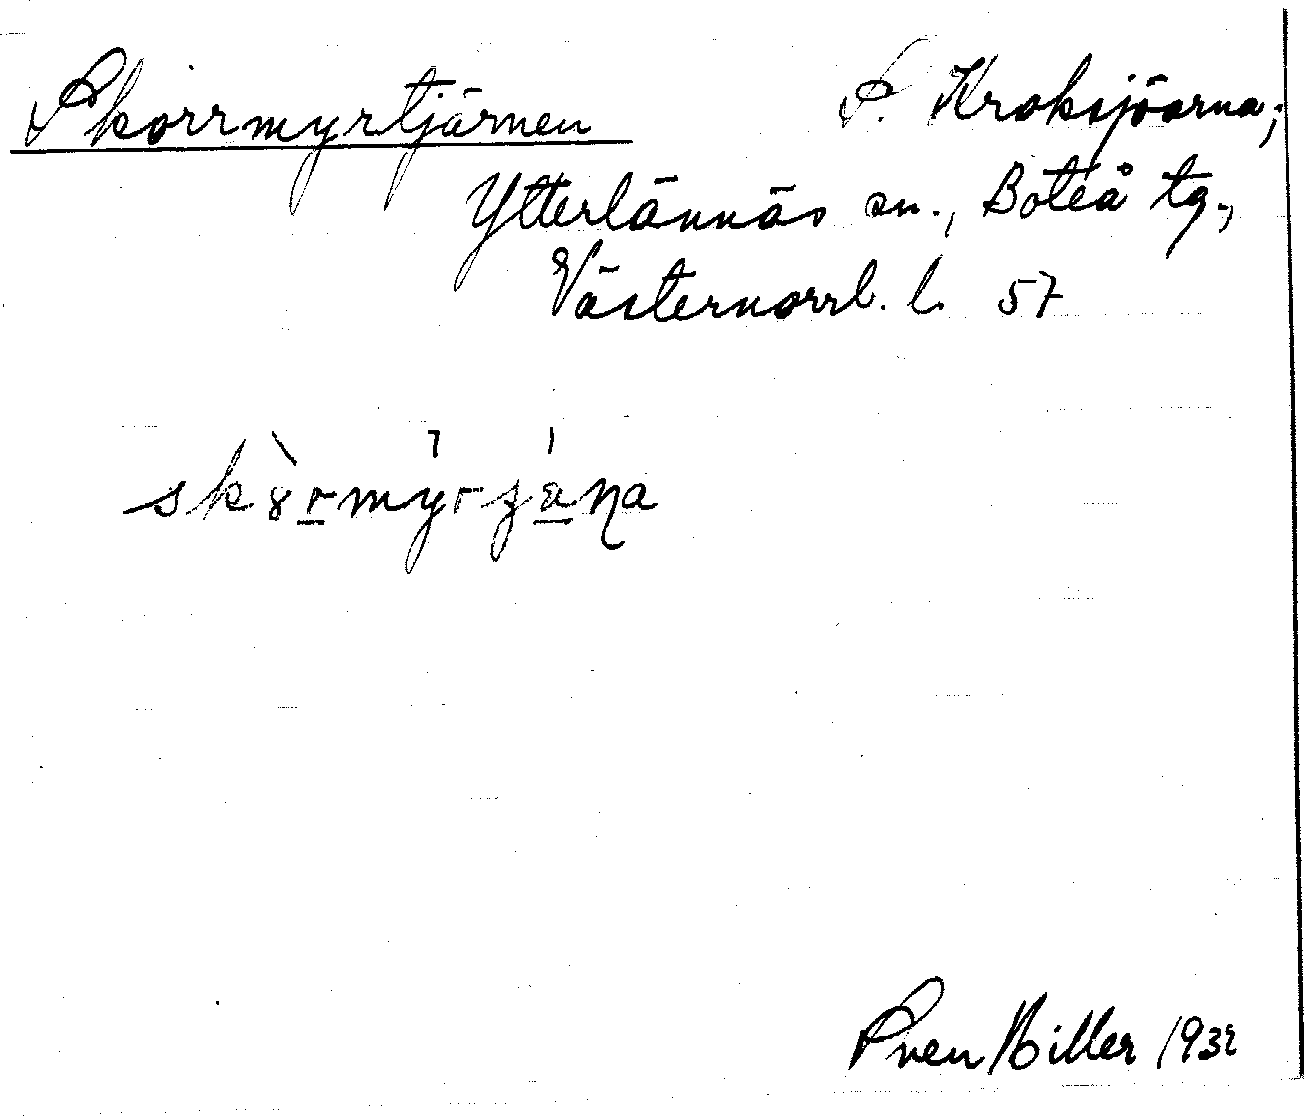 Skorrmyrtjärnen S. Kroksjöarna;
Ytterlännäs sn., Boteå tg.,
Västernorrl. l. 57
Sven Hiller 1932